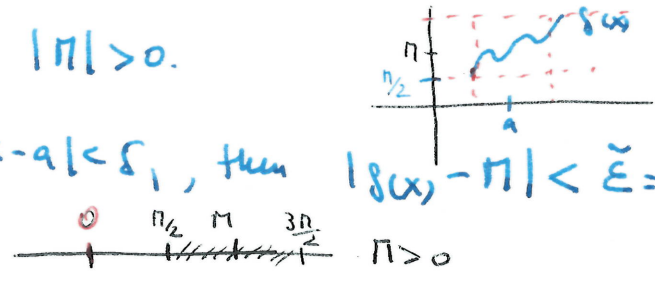 |M| > 0.
g(x)
M
M/2
a
-a| < δ₁, then |g(x) - M| < ε̃ =
0 M/2 M 3M/2
M > 0